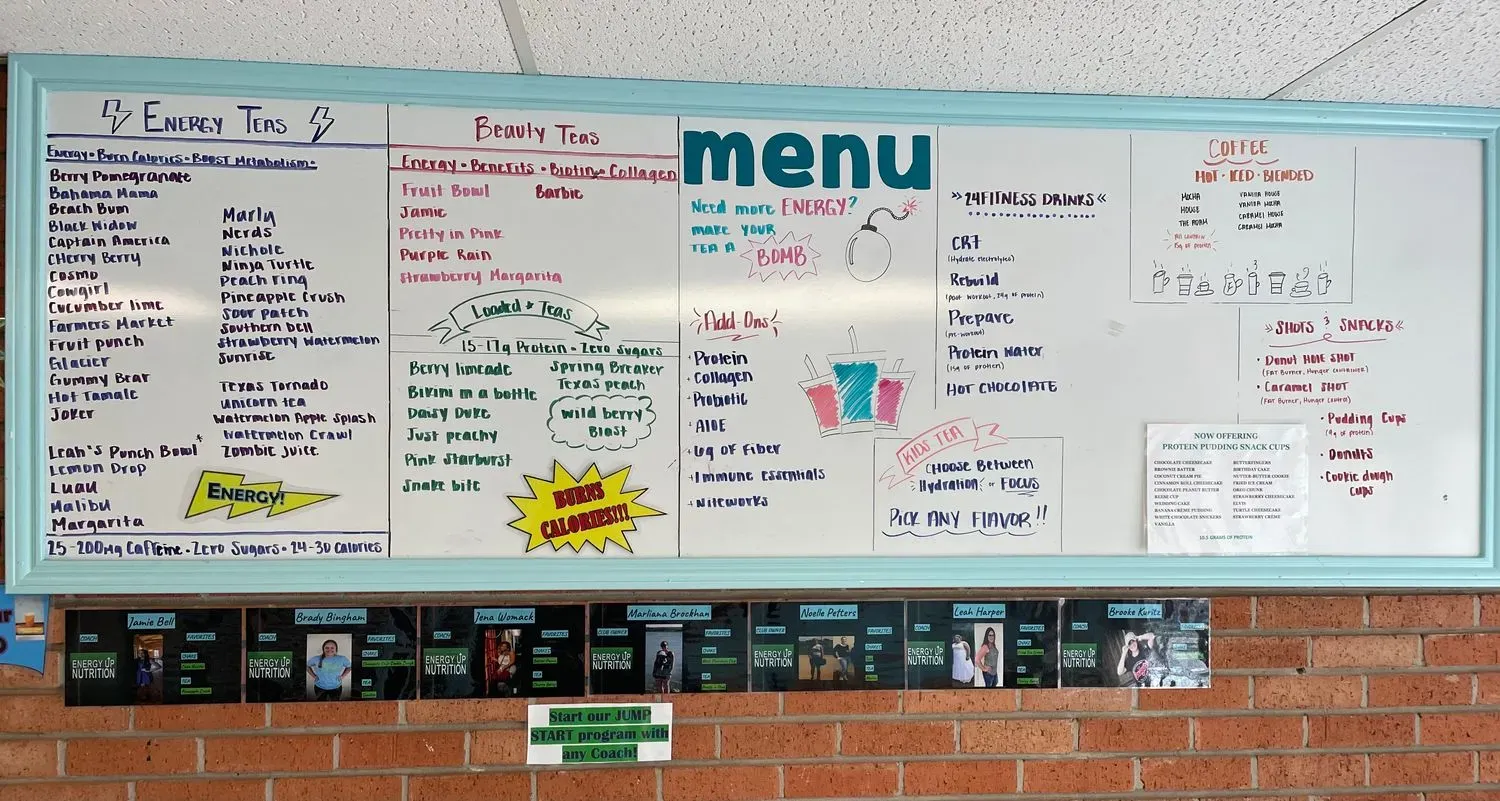 ENERGY TEAS
Energy • Burn Calories • BOOST Metabolism •
Berry Pomegranate
Bahama Mama
Beach Bum
Black Widow
Captain America
CHerry Berry
Cosmo
Cowgirl
Cucumber lime
Farmers Market
Fruit punch
Glacier
Gummy Bear
Hot Tamale
Joker
Leah's Punch Bowl*
Lemon Drop
Luau
Malibu
Margarita
Marly
Nerds
Nichole
Ninja Turtle
Peach ring
Pineapple Crush
Sour patch
Southern bell
Strawberry Watermelon
Sunrise
Texas Tornado
Unicorn tea
Watermelon Apple Splash
Watermelon Crawl
Zombie Juice
ENERGY!
25-200mg Caffeine • Zero Sugars • 24-30 Calories
Beauty Teas
Energy • Benefits • Biotin • Collagen
Fruit Bowl
Jamie
Pretty in Pink
Purple Rain
Strawberry Margarita
Barbie
Loaded + Teas
15-17g Protein • Zero Sugars
Berry limeade
Bikini in a bottle
Daisy Duke
Just peachy
Pink Starburst
Snake bite
Spring Breaker
Texas peach
Wild berry
Blast
BURNS
CALORIES!!!
menu
Need more ENERGY?
make your
TEA A
BOMB
Add-Ons
Protein
Collagen
Probiotic
AlOE
6g OF Fiber
Immune Essentials
Niteworks
»24FITNESS DRINKS«
CR7
(Hydrate electrolytes)
Rebuild
(post workout, 24g of protein)
Prepare
(pre-workout)
Protein Water
(15g of protein)
HOT CHOCOLATE
KIDS TEA
CHOOSE Between
Hydration or FOCUS
PICK ANY FLAVOR!!
COFFEE
HOT • ICED • BLENDED
MOCHA
HOUSE
THE ADAM
All contain
15g of protein
VANILLA HOUSE
VANILLA MOCHA
CARAMEL HOUSE
CARAMEL MOCHA
»SHOTS & SNACKS«
• Donut HOlE SHOT
(FAT Burner, Hunger Container)
• Caramel SHOT
(FAT Burner, Hunger Control)
• Pudding Cups
(9g of protein)
• Donuts
• Cookie dough
cups
NOW OFFERING
PROTEIN PUDDING SNACK CUPS
CHOCOLATE CHEESECAKE
BROWNIE BATTER
COCONUT CREAM PIE
CINNAMON ROLL CHEESECAKE
CHOCOLATE PEANUT BUTTER
REESE CUP
WEDDING CAKE
BANANA CRÈME PUDDING
WHITE CHOCOLATE SNICKERS
VANILLA
BUTTERFINGERS
BIRTHDAY CAKE
NUTTER-BUTTER COOKIE
FRIED ICE CREAM
OREO CHUNK
STRAWBERRY CHEESECAKE
ELVIS
TURTLE CHEESECAKE
STRAWBERRY CRÈME
10.5 GRAMS OF PROTEIN
Jamie Bell
COACH
FAVORITES
ENERGY UP
NUTRITION
SHAKE
TEA
Brady Bingham
COACH
FAVORITES
ENERGY UP
NUTRITION
SHAKE
TEA
Jena Womack
COACH
FAVORITES
ENERGY UP
NUTRITION
SHAKE
TEA
Marliana Brockhan
CLUB OWNER
FAVORITES
ENERGY UP
NUTRITION
SHAKE
TEA
Noelle Petters
CLUB OWNER
FAVORITES
ENERGY UP
NUTRITION
SHAKE
TEA
Leah Harper
COACH
FAVORITES
ENERGY UP
NUTRITION
SHAKE
TEA
Brooke Kuritz
COACH
ENERGY UP
NUTRITION
Start our JUMP
START program with
any Coach!